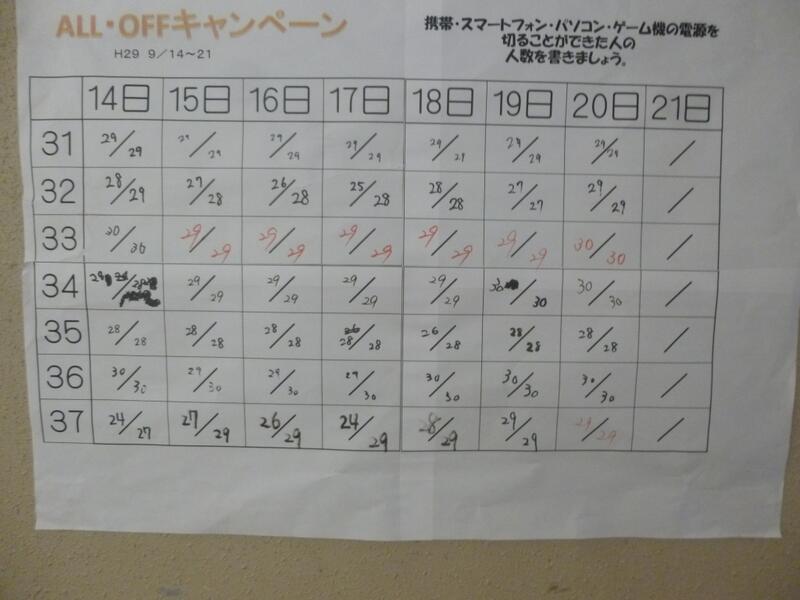 ALL・OFFキャンペーン
H29 9／14～21
携帯・スマートフォン・パソコン・ゲーム機の電源を
切ることができた人の
人数を書きましょう。
14日 15日 16日 17日 18日 19日 20日 21日
31 29/29 29/29 29/29 29/29 29/29 29/29 29/29 /
32 28/29 27/28 26/28 25/28 28/28 27/27 29/29 /
33 30/30 29/29 29/29 29/29 29/29 29/29 30/30 /
34 29/29 29/29 29/29 29/29 30/30 30/30 /
35 28/28 28/28 28/28 28/28 26/28 28/28 28/28 /
36 30/30 29/30 29/30 29/30 30/30 30/30 30/30 /
37 24/27 27/29 26/29 24/29 28/29 29/29 29/29 /